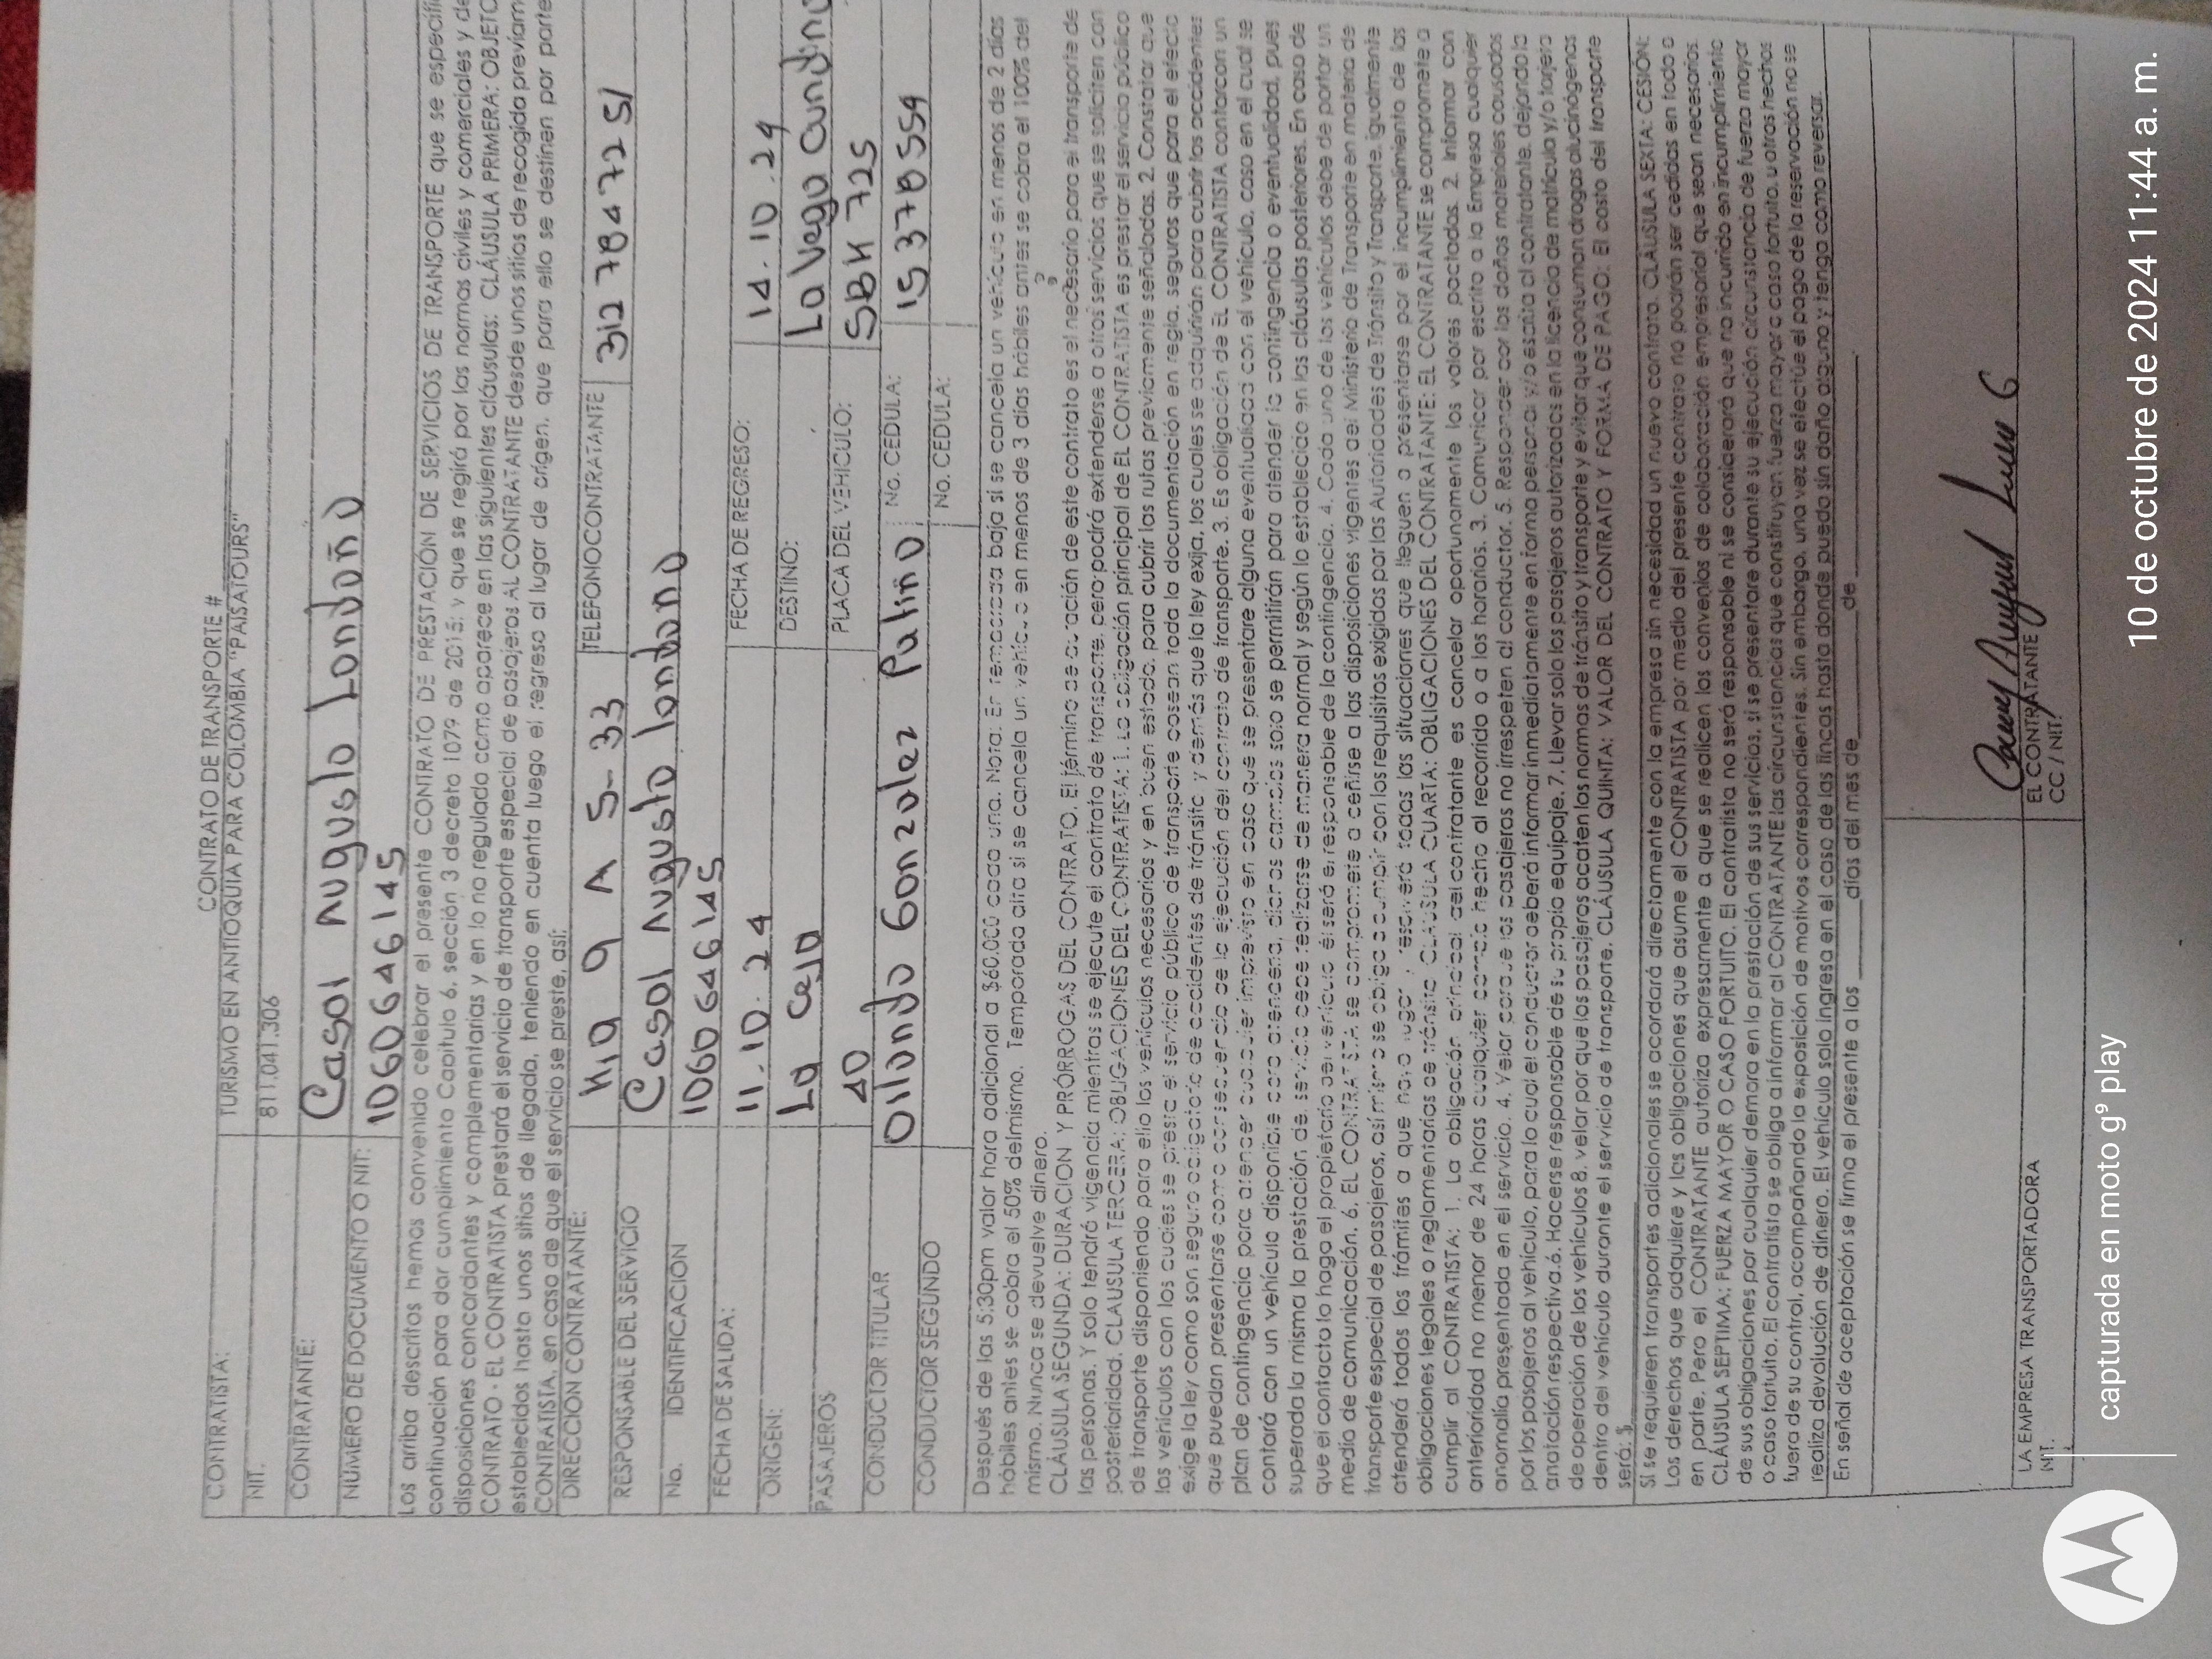 CONTRATO DE TRANSPORTE #
CONTRATISTA: TURISMO EN ANTIOQUIA PARA COLOMBIA "PAISATOURS"
NIT. 811.041.306
CONTRATANTE: Casol Augusto Londoño
NÚMERO DE DOCUMENTO O NIT: 1060646145
Los arriba descritos hemos convenido celebrar el presente CONTRATO DE PRESTACIÓN DE SERVICIOS DE TRANSPORTE que se especific
continuación para dar cumplimiento Capitulo 6, sección 3 decreto 1079 de 2015; y que se regirá por las normas civiles y comerciales y de
disposiciones concordantes y complementarias y en lo no regulado como aparece en las siguientes cláusulas: CLÁUSULA PRIMERA: OBJETO
CONTRATO - EL CONTRATISTA prestará el servicio de transporte especial de pasajeros AL CONTRATANTE desde unos sitios de recogida previam
establecidos hasta unos sitios de llegada, teniendo en cuenta luego el regreso al lugar de orígen, que para ello se destinen por parte
CONTRATISTA, en caso de que el servicio se preste, así:
DIRECCION CONTRATANTE: K19 9 A 5-33 TELEFONO CONTRATANTE 3127847251
RESPONSABLE DEL SERVICIO Casol Augusto londono
No. IDENTIFICACION 1060646145
FECHA DE SALIDA: 11.10.24 FECHA DE REGRESO: 14.10.24
ORIGEN: La Ceja DESTINO: La Vega Cundina
PASAJEROS 40 PLACA DEL VEHICULO: SBK 725
CONDUCTOR TITULAR Orlando Gonzalez Patiño No. CEDULA: 15378559
CONDUCTOR SEGUNDO No. CEDULA:
Después de las 5:30pm valor hora adicional a $60.000 cada una. Nota: En temporada baja si se cancela un vehículo en menos de 2 días
hábiles antes se cobra el 50% del mismo. Temporada alta si se cancela un vehículo en menos de 3 días hábiles antes se cobra el 100% del
mismo. Nunca se devuelve dinero.
CLÁUSULA SEGUNDA: DURACION Y PRÓRROGAS DEL CONTRATO. El término de duración de este contrato es el necesario para el transporte de
las personas. Y solo tendrá vigencia mientras se ejecute el contrato de transporte, pero podrá extenderse a otros servicios que se soliciten con
posterioridad. CLAUSULA TERCERA: OBLIGACIONES DEL CONTRATISTA: 1. La obligación principal de EL CONTRATISTA es prestar el servicio público
de transporte disponiendo para ello los vehículos necesarios y en buen estado, para cubrir las rutas previamente señaladas. 2. Constatar que
los vehículos con los cuales se preste el servicio público de transporte posean toda la documentación en regla, seguros que para el efecto
exige la ley como son seguro obligatorio de accidentes de tránsito y demás que la ley exija, los cuales se adquirirán para cubrir los accidentes
que puedan presentarse como consecuencia de la ejecución del contrato de transporte. 3. Es obligación de EL CONTRATISTA contar con un
plan de contingencia para atender cualquier imprevisto en caso que se presentare alguna eventualidad con el vehículo, caso en el cual se
contará con un vehículo disponible para atenderla, dichos cambios solo se permitirán para atender la contingencia o eventualidad, pues
superada la misma la prestación del servicio debe realizarse de manera normal y según lo establecido en las cláusulas posteriores. En caso de
que el contacto lo haga el propietario del vehículo él será el responsable de la contingencia. 4. Cada uno de los vehículos debe de portar un
medio de comunicación. 6. EL CONTRATISTA se compromete a ceñirse a las disposiciones vigentes del Ministerio de Transporte en materia de
transporte especial de pasajeros, así mismo se obliga a cumplir con los requisitos exigidos por las Autoridades de Tránsito y Transporte, igualmente
atenderá todos los trámites a que haya lugar y resolverá todas las situaciones que lleguen a presentarse por el incumplimiento de las
obligaciones legales o reglamentarias de tránsito CLAUSULA CUARTA: OBLIGACIONES DEL CONTRATANTE: EL CONTRATANTE se compromete a
cumplir al CONTRATISTA: 1. La obligación principal del contratante es cancelar oportunamente los valores pactados. 2. Informar con
anterioridad no menor de 24 horas cualquier cambio hecho al recorrido o a los horarios. 3. Comunicar por escrito a la Empresa cualquier
anomalía presentada en el servicio. 4. Velar para que los pasajeros no irrespeten al conductor. 5. Responder por los daños materiales causados
por los pasajeros al vehículo, para lo cual el conductor deberá informar inmediatamente en forma personal y/o escrita al contratante, dejando la
anotación respectiva.6. Hacerse responsable de su propio equipaje. 7. Llevar solo los pasajeros autorizados en la licencia de matrícula y/o tarjeta
de operación de los vehículos 8. velar por que los pasajeros acaten las normas de tránsito y transporte y evitar que consuman drogas alucinógenas
dentro del vehículo durante el servicio de transporte. CLÁUSULA QUINTA: VALOR DEL CONTRATO Y FORMA DE PAGO: El costo del transporte
será: $
Si se requieren transportes adicionales se acordará directamente con la empresa sin necesidad un nuevo contrato. CLÁUSULA SEXTA: CESIÓN:
Los derechos que adquiere y las obligaciones que asume el CONTRATISTA por medio del presente contrato no podrán ser cedidas en todo o
en parte. Pero el CONTRATANTE autoriza expresamente a que se realicen los convenios de colaboración empresarial que sean necesarios.
CLÁUSULA SEPTIMA: FUERZA MAYOR O CASO FORTUITO. El contratista no será responsable ni se considerará que no incurrido en incumplimiento
de sus obligaciones por cualquier demora en la prestación de sus servicios, si se presentare durante su ejecución circunstancia de fuerza mayor
o caso fortuito. El contratista se obliga a informar al CONTRATANTE las circunstancias que constituyan fuerza mayor o caso fortuito, u otros hechos
fuera de su control, acompañando la exposición de motivos correspondientes. Sin embargo, una vez se efectúe el pago de la reservación no se
realiza devolución de dinero. El vehículo solo ingresa en el caso de las fincas hasta donde pueda sin daño alguno y tenga como reversar.
En señal de aceptación se firma el presente a los ______ días del mes de____________de____________
LA EMPRESA TRANSPORTADORA EL CONTRATANTE
NIT. CC / NIT:
capturada en moto g⁹ play 10 de octubre de 2024 11:44 a. m.